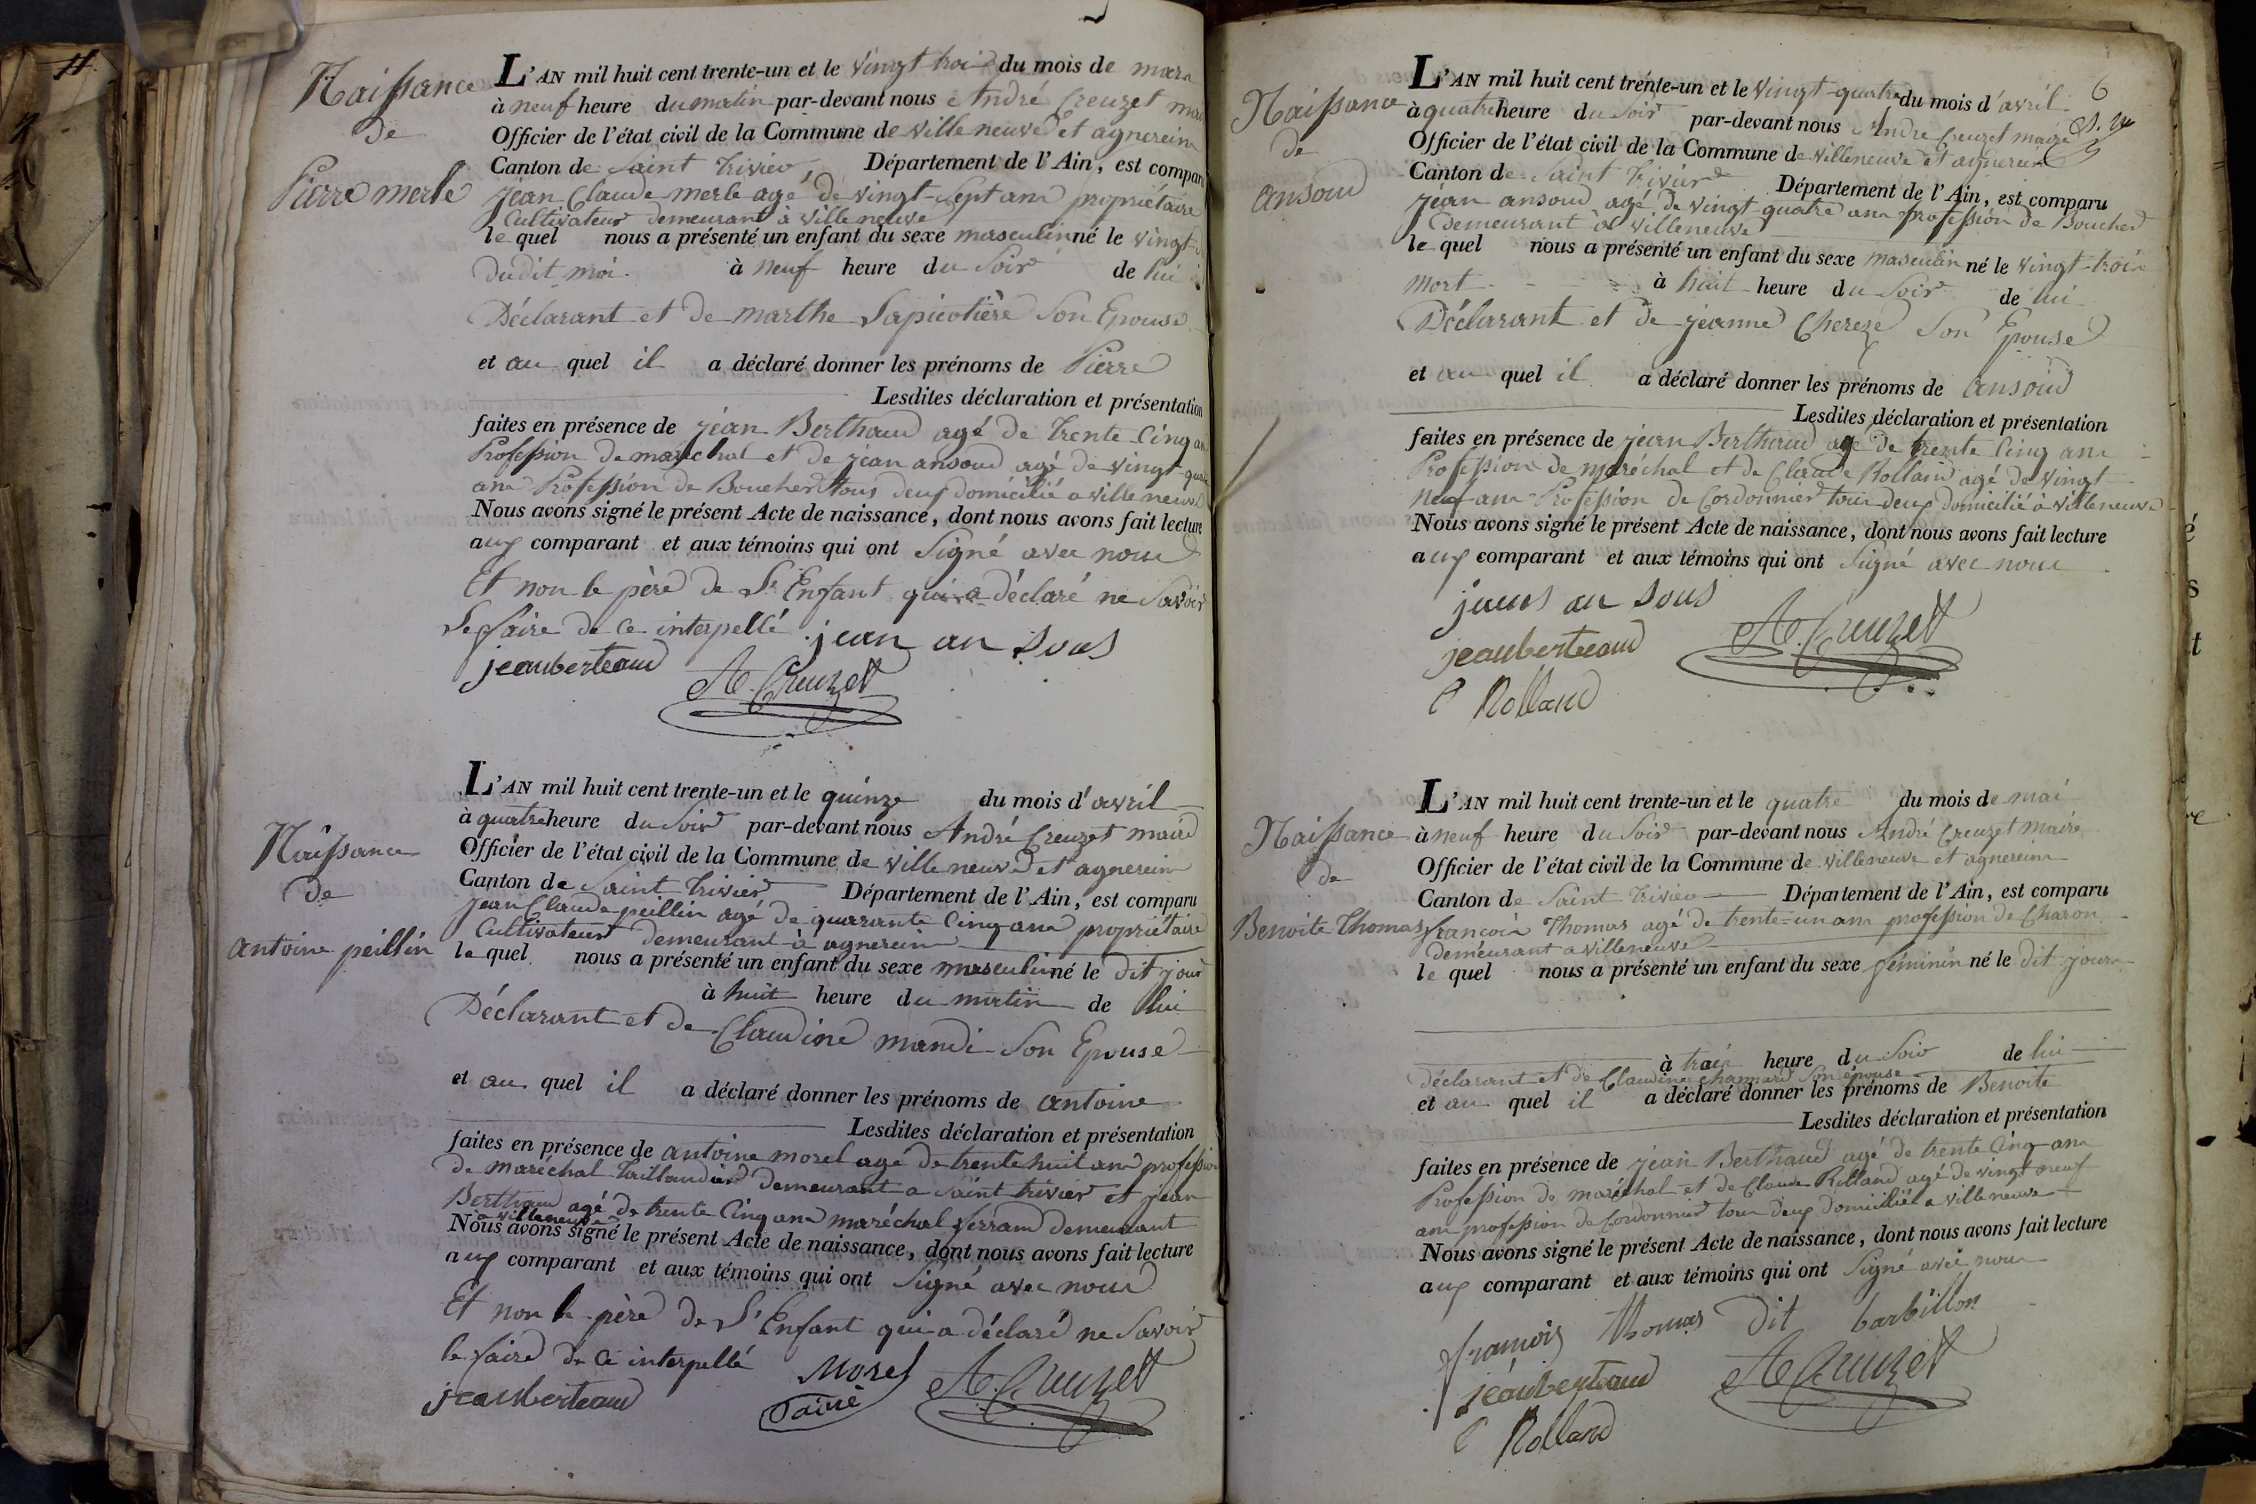 11
Naissance
de
Pierre merle
L'AN mil huit cent trente-un et le vingt trois du mois de mars
à neuf heure du matin par-devant nous André Creuzet mai
Officier de l'état civil de la Commune de villeneuve et agnerein
Canton de Saint Trivier Département de l'Ain, est compar
jean Claude merle agé de vingt-sept ans propriétaire
Cultivateur demeurant à villeneuve
le quel nous a présenté un enfant du sexe masculin né le vingt
dudit moi. à neuf heure du Soir de lui
Déclarant et de marthe Lapicotière Son Epouse
et au quel il a déclaré donner les prénoms de Pierre
Lesdites déclaration et présentation
faites en présence de jean Berthaud agé de trente Cinq an
Profession de maréchal et de jean ansoud agé de vingt-qua
ans Profession de Boucher tous deux domicilié a villeneuve
Nous avons signé le présent Acte de naissance, dont nous avons fait lecture
aux comparant et aux témoins qui ont Signé avec nous
Et non le père de L'Enfant qui a déclaré ne Savoir
Le faire de ce interpellé jean an sous
jeanberteaud
A. Creuzet
Naissance
de
antoine peillin
L'AN mil huit cent trente-un et le quinze du mois d'avril
à quatre heure du Soir par-devant nous André Creuzet maire
Officier de l'état civil de la Commune de villeneuve et agnerein
Canton de Saint Trivier Département de l'Ain, est comparu
jean Claude peillin agé de quarante Cinq ans propriétaire
Cultivateur demeurant à agnerein
le quel nous a présenté un enfant du sexe masculin né le dit jour
à huit heure du matin de lui
Déclarant et de Claudine mandi Son Epouse
et au quel il a déclaré donner les prénoms de antoine
Lesdites déclaration et présentation
faites en présence de antoine morel agé de trente huit ans profession
de maréchal taillandier demeurant a Saint trivier et jean
Berthaud agé de trente Cinq ans maréchal ferrand demeurant
a villeneuve
Nous avons signé le présent Acte de naissance, dont nous avons fait lecture
aux comparant et aux témoins qui ont Signé avec nous
Et non le père de L'Enfant qui a déclaré ne Savoir
le faire de ce interpellé Morel
jeanberteaud A. Creuzet
6
Naissance
de
ansoud
L'AN mil huit cent trente-un et le vingt-quatre du mois d'avril
à quatre heure du Soir par-devant nous André Creuzet maire
Officier de l'état civil de la Commune de villeneuve et agnerein
Canton de Saint Trivier Département de l'Ain, est comparu
jean ansoud agé de vingt quatre ans profession de Boucher
demeurant à villeneuve
le quel nous a présenté un enfant du sexe masculin né le vingt-trois
mort à huit heure du Soir de lui
Déclarant et de jeanne Chereze Son Epouse
et au quel il a déclaré donner les prénoms de ansoud
Lesdites déclaration et présentation
faites en présence de jean Berthaud agé de trente Cinq ans
Profession de maréchal et de Claude Rolland agé de vingt
neuf ans Profession de Cordonnier tous deux domicilié à villeneuve
Nous avons signé le présent Acte de naissance, dont nous avons fait lecture
aux comparant et aux témoins qui ont Signé avec nous
jean an sous
jeanberteaud A. Creuzet
C Rolland
Naissance
de
Benoite Thomas
L'AN mil huit cent trente-un et le quatre du mois de mai
à neuf heure du Soir par-devant nous André Creuzet maire
Officier de l'état civil de la Commune de villeneuve et agnerein
Canton de Saint Trivier Département de l'Ain, est comparu
françois Thomas agé de trente-un ans profession de Charon
demeurant a villeneuve
le quel nous a présenté un enfant du sexe féminin né le dit jour
à trois heure du Soir de lui
déclarant et de Claudine chamard Son épouse
et au quel il a déclaré donner les prénoms de Benoite
Lesdites déclaration et présentation
faites en présence de jean Berthaud agé de trente Cinq ans
Profession de maréchal et de Claude Rolland agé de vingt neuf
ans profession de Cordonnier tous deux domiciliés a villeneuve
Nous avons signé le présent Acte de naissance, dont nous avons fait lecture
aux comparant et aux témoins qui ont Signé avec nous
françois thomas dit barbillon
jeanberteaud A. Creuzet
C Rolland